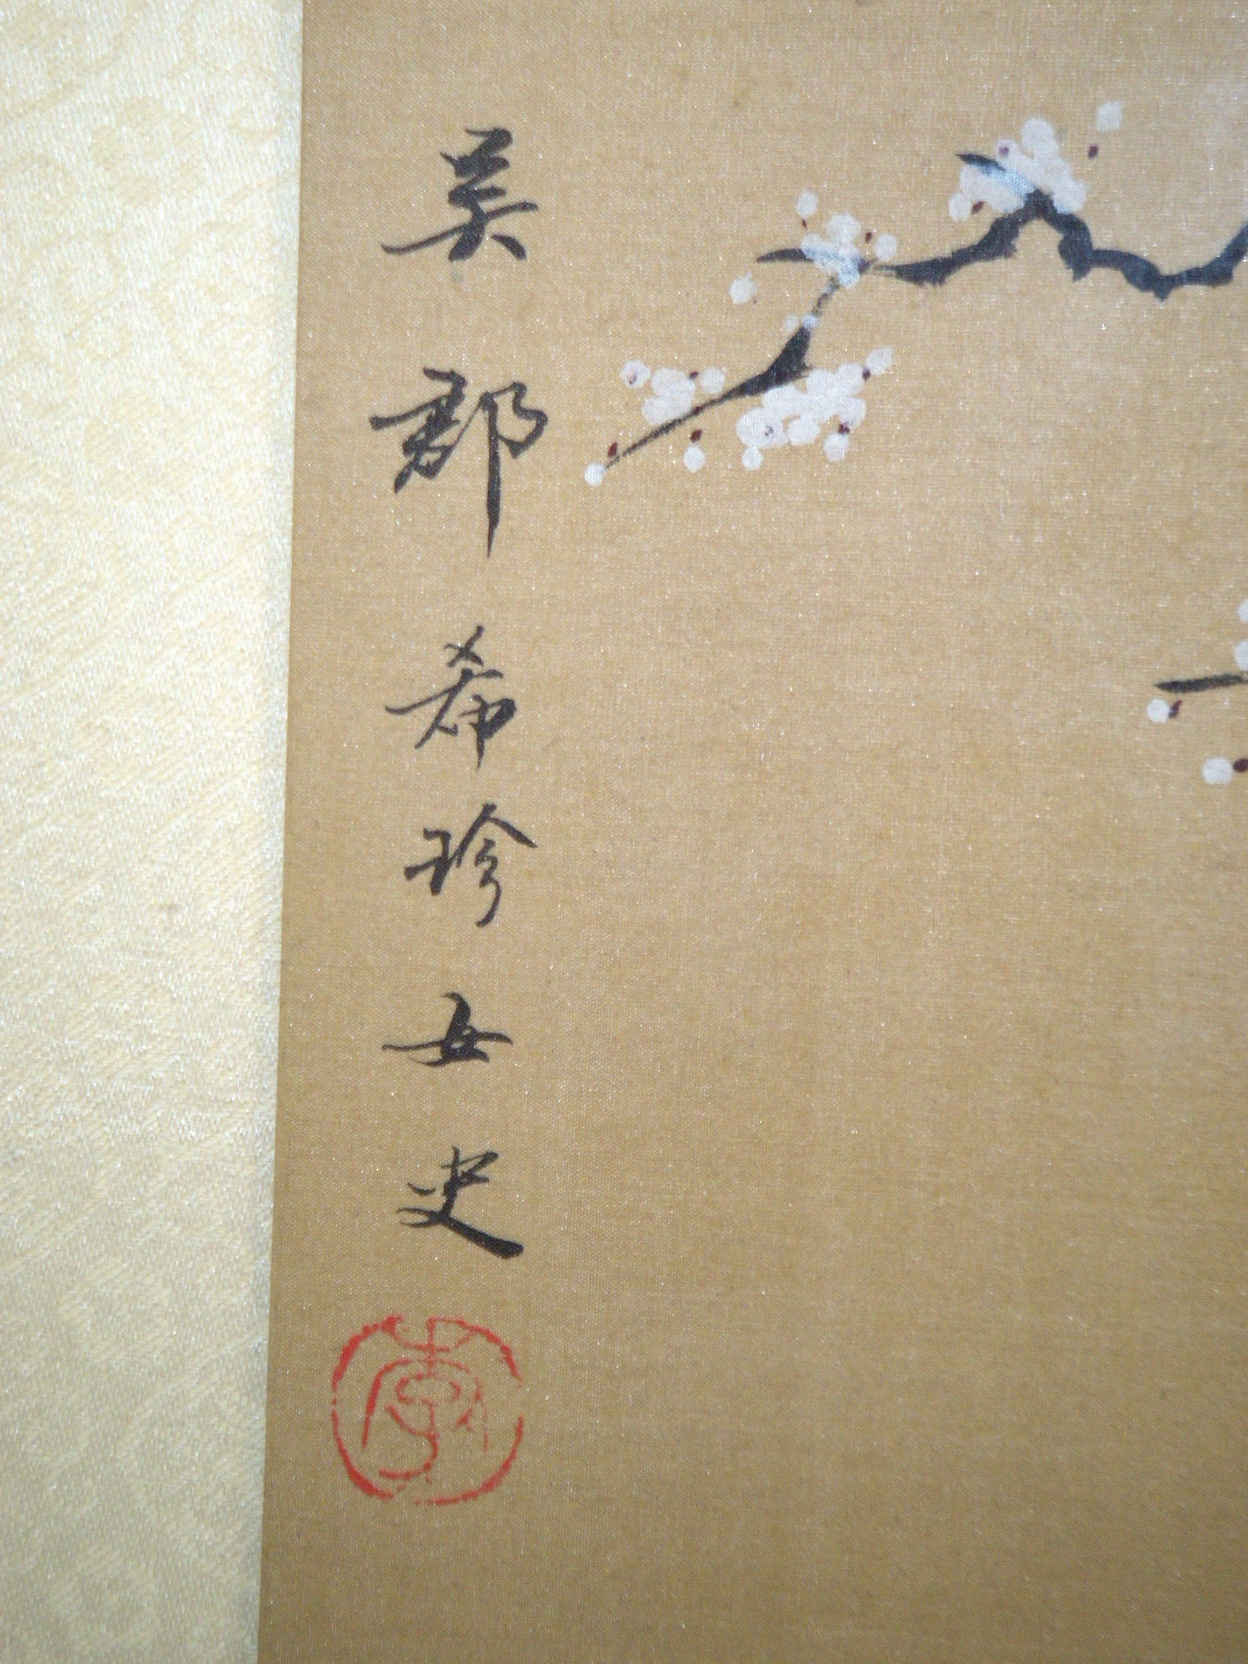 吴郡希珍女史